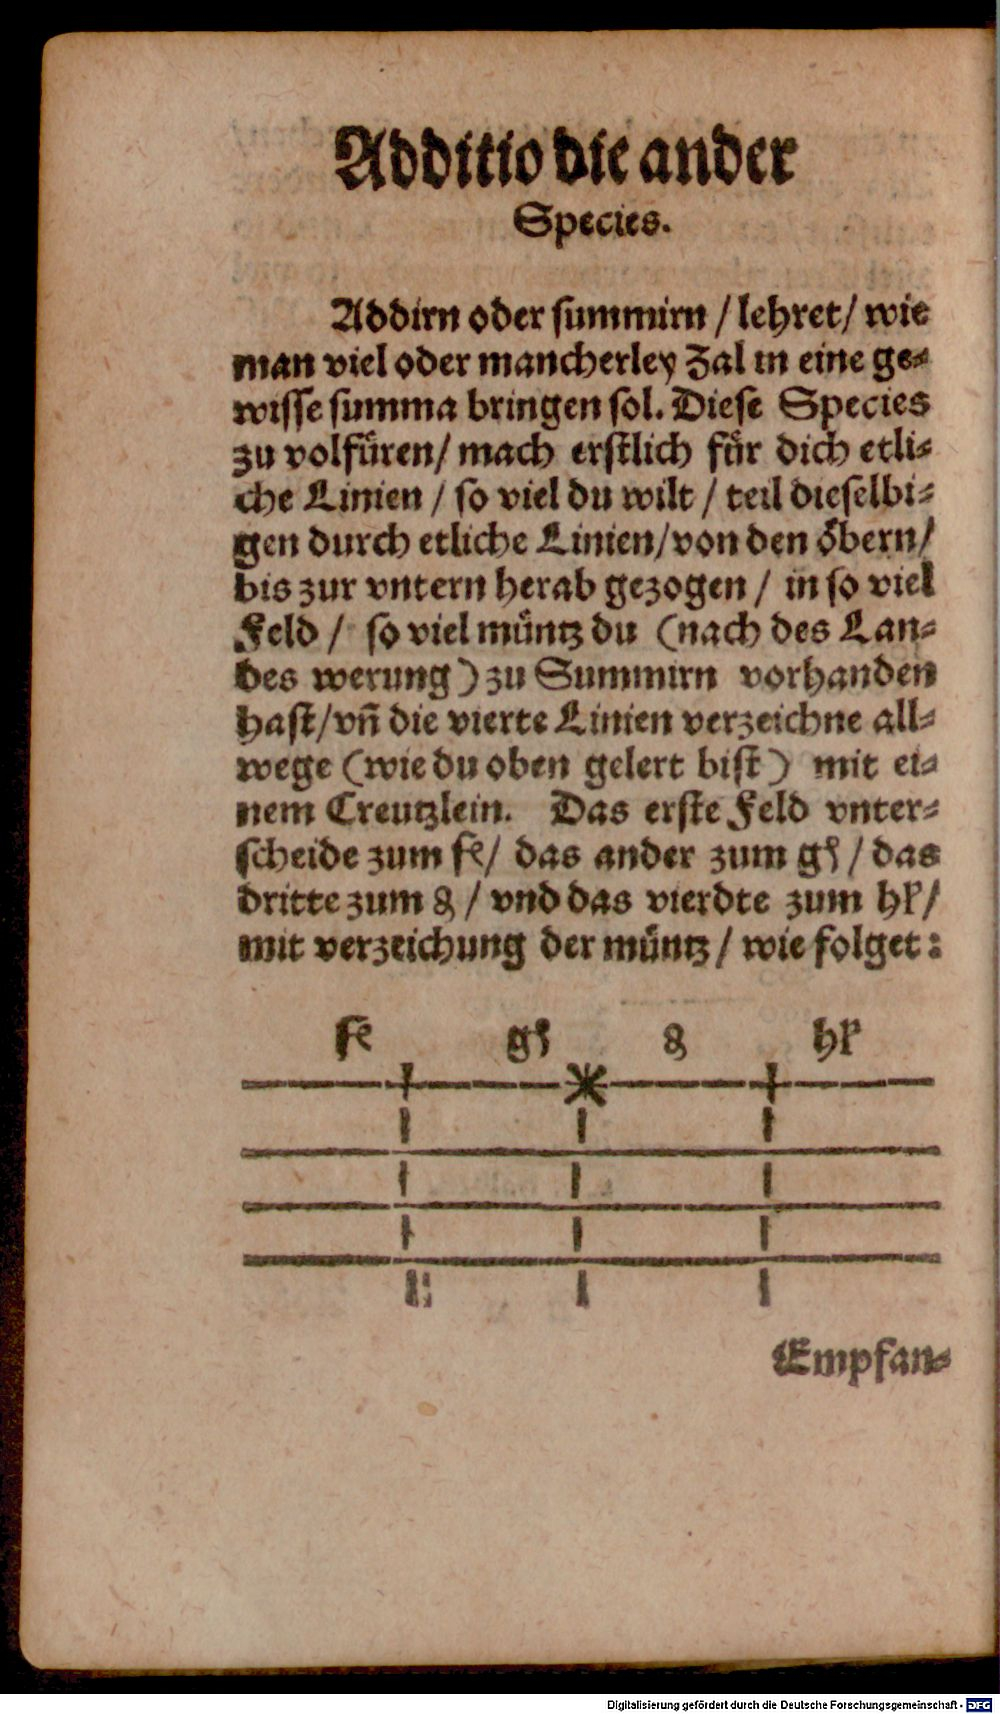 Additio die ander
Species.
Addirn oder summirn / lehret / wie
man viel oder mancherley Zal in eine ge⸗
wisse summa bringen sol. Diese Species
zu volfüren / mach erstlich für dich etli⸗
che Linien / so viel du wilt / teil dieselbi⸗
gen durch etliche Linien / von den öbern /
bis zur vntern herab gezogen / in so viel
Feld / so viel müntz du (nach des Lan⸗
des werung) zu Summirn vorhanden
hast / vñ die vierte Linien verzeichne all⸗
wege (wie du oben gelert bist) mit ei⸗
nem Creutzlein. Das erste Feld vnter⸗
scheide zum fe / das ander zum gſ / das
dritte zum ₰ / vnd das vierdte zum hſ /
mit verzeichung der müntz / wie folget:
fe gſ ₰ hſ
Empfan⸗
Digitalisierung gefördert durch die Deutsche Forschungsgemeinschaft - DFG